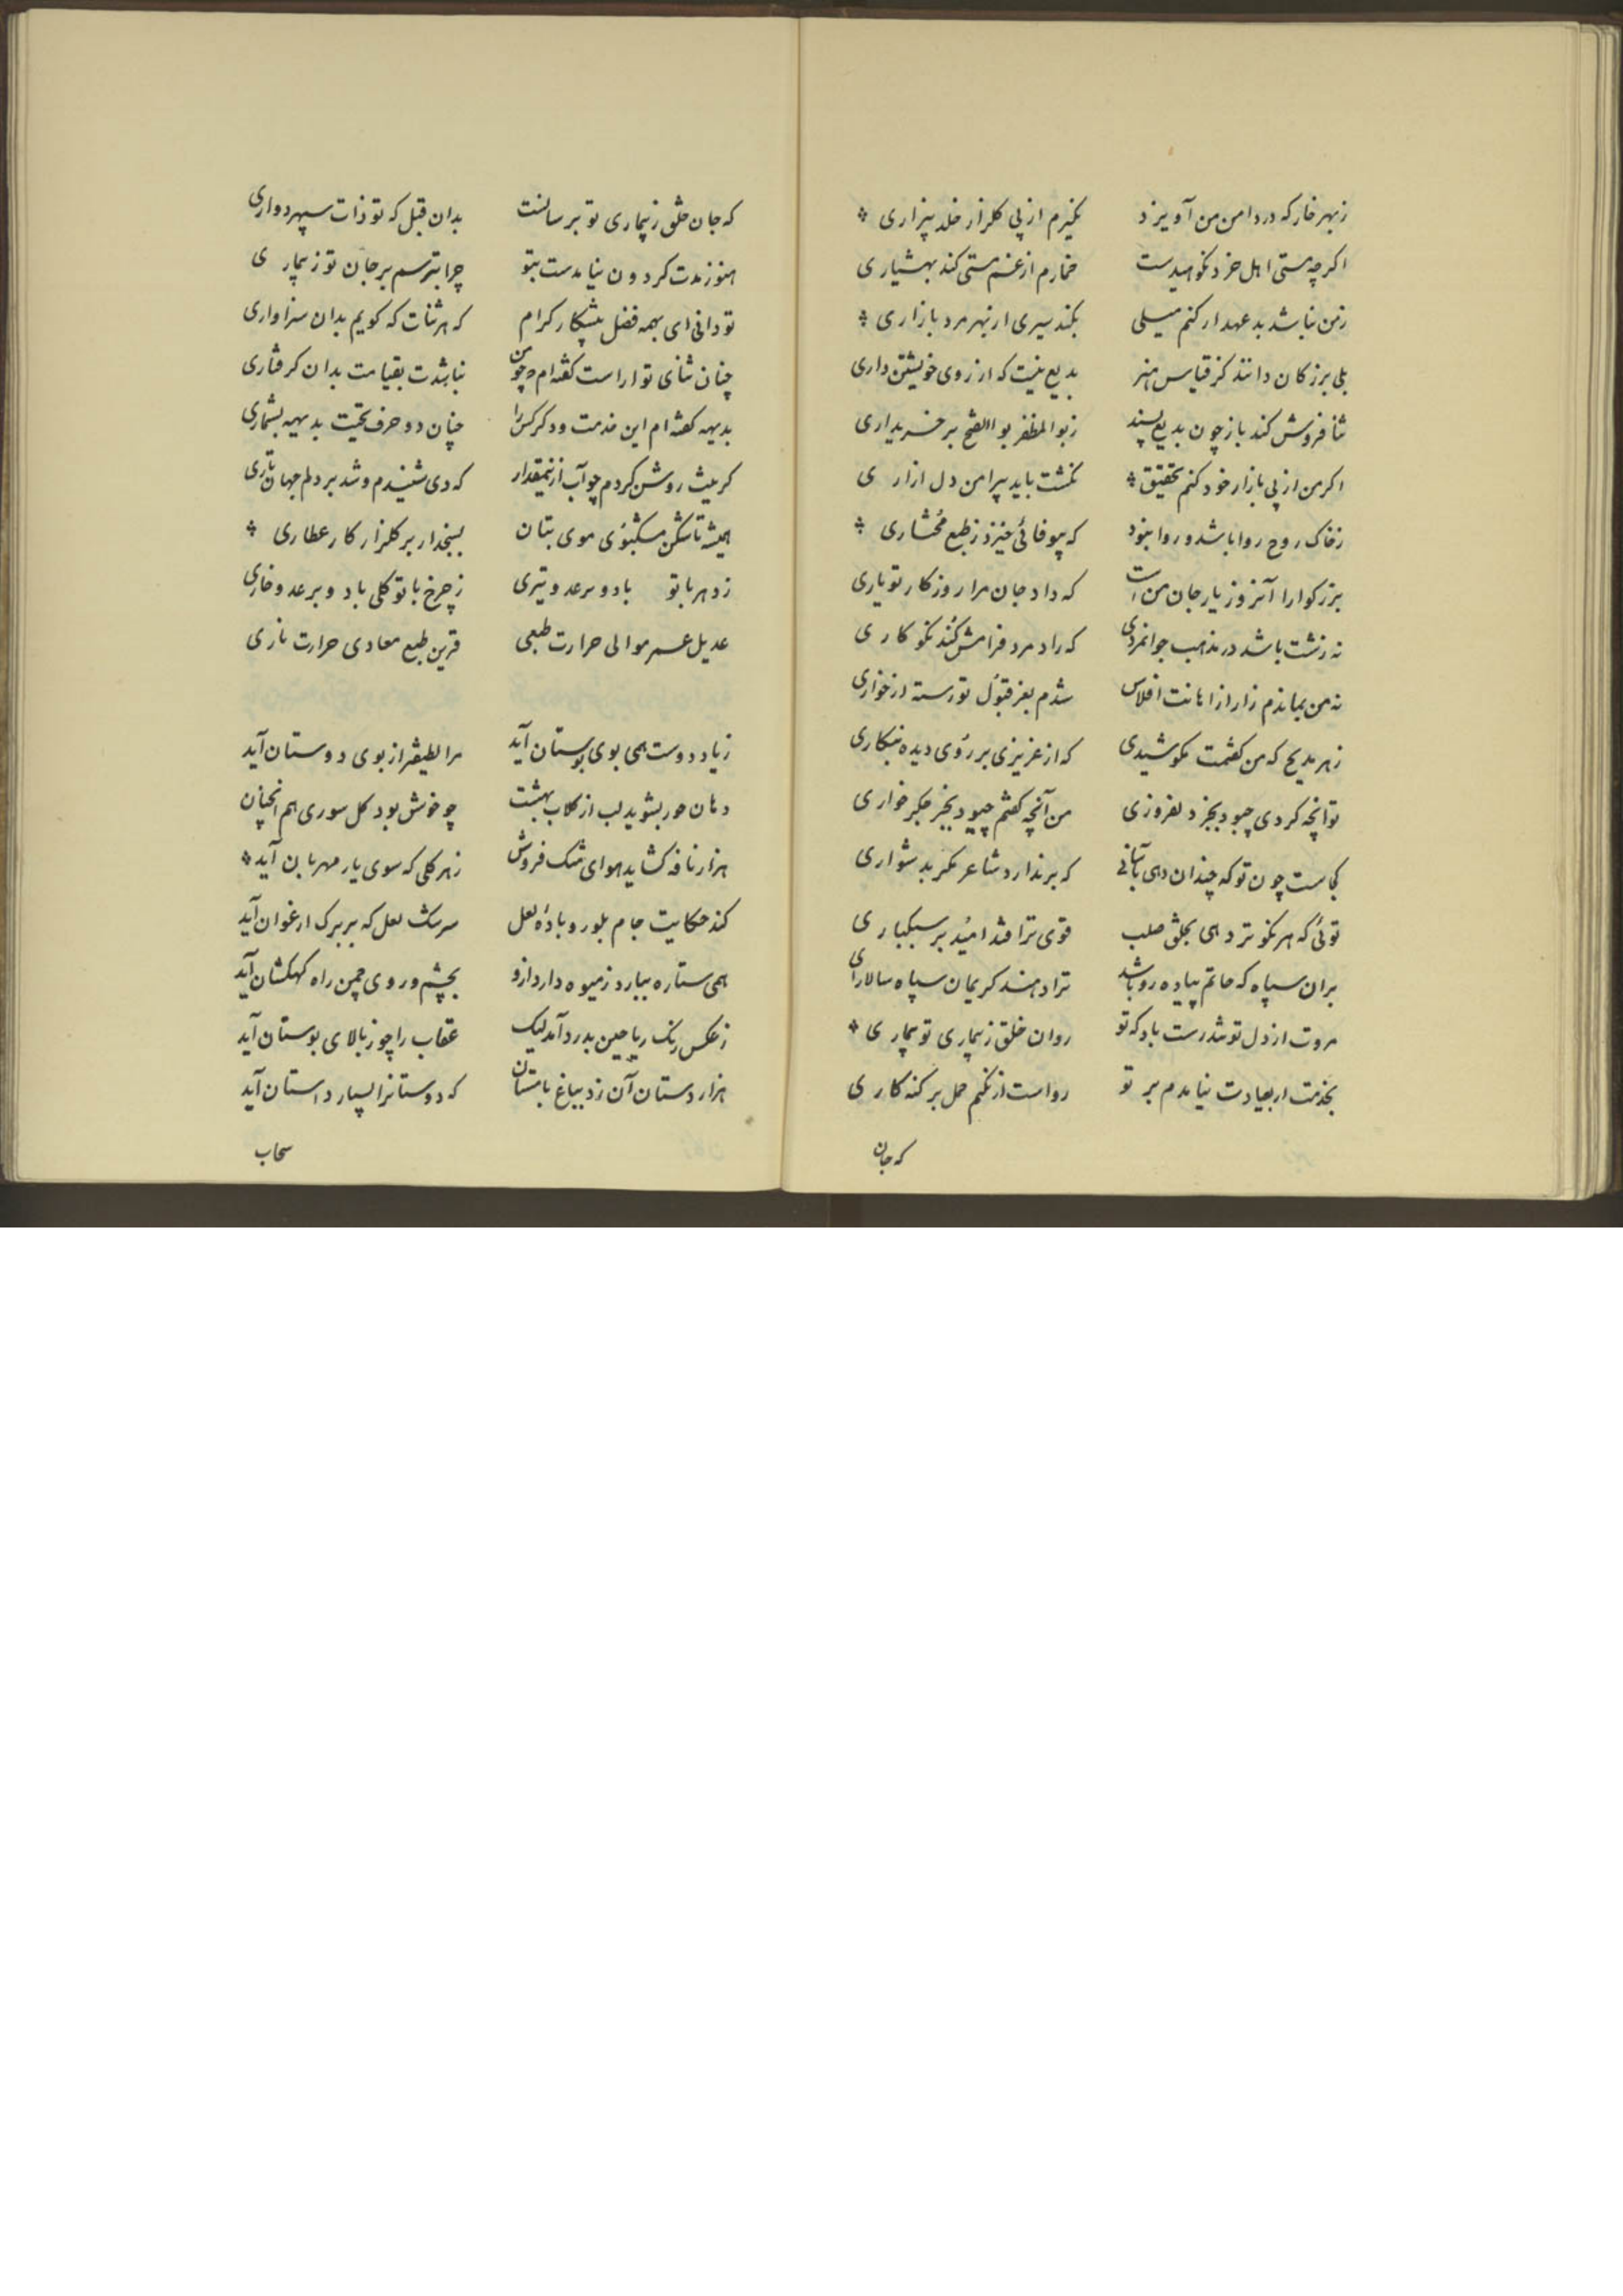 زبهر خار که در دامن من آویزد نکیرم از پی کلزار خلد بیزاری
اکرچه مستی اهل خرد نکوهیدست خمارم از غم مستی کند بهشیاری
زمن نباشد بد عهد ار کنم میلی بکند سیری از بهر مرد بازاری
بلی بزرکان دانند کز قیاس هنر بدیع نیست که از روی خویشتن داری
ثنا فروش کند باز چون بدیع پسند زبوالمظفر بوالفتح بر خریداری
اکر من از پی بازار خود کنم تحقیق نکشت باید پیرامن دل ازاری
زخاک روح روا باشد و روا نبود که بیوفائی خیزد ز طبع
بزرکوارا آنروز یار جان من است که داد جان مرا روزکار تو یاری
نه زشت باشد در مذهب جوانمردی که راد مرد فرامش کند نکوکاری
نه من بماندم زار از اهانت افلاس شدم بعز قبول تو رسته از خواری
زهر مدیح که من کفتمت نکوشیدی که از عزیزی بر روی دیده بنکاری
تو انچه کردی چبود بجز دلفروزی من آنچه کفتم چبود بجز جکر خواری
کجاست چون تو که چندان دهی بآسانی که بر ندارد شاعر مکر بدشواری
توئی که هر نکو تر دهی بخلق صلب قوی ترا فتد امید بر سبکباری
بران سپاه که حاتم پیاده رو باشد ترا دهند کریمان سپاه سالاری
مروت از دل تو تندرست باد که تو روان خلق ز بیماری تو بیماری
بخدمت ار بعیادت نیامدم بر تو رواست ار نکنم حمل بر کنه کاری
که جان
که جان خلق ز بیماری تو ترسانست بدان قبل که تو ذات سپهر دواری
هنوز مدت کردون نیامدست بتو چرا بترسم بر جان تو ز بیماری
تو دانی ای بهمه فضل پیشکار کرام که هر ثنات که کویم بدان سزاواری
چنان ثنای تو اراست کفته‌ام و چو من نباشدت بقیامت بدان کرفتاری
بدیهه کفته‌ام این خدمت و دکر کس را چنان دو حرف تحیت بدیهه بشماری
کریت روشن کردم چو آب ازینمقدار که دی شنیدم و شد بر دلم جهان تاری
همیشه تا شکن مشکبوی موی بتان بسنجد ار بر کلزار کار عطاری
ز دهر با تو باد و بر عدو تیری ز چرخ با تو کلی باد و بر عدو خاری
عدیل عمر موالی حرارت طبعی قرین طبع معادی حرارت ناری
زیاد دوست همی بوی بوستان آید مرا لطیفتر از بوی دوستان آید
دهان حور بشوید لب از کلاب بهشت چو خوش بود کل سوری هم انچنان
هزار نافه کشاید هوای مشک فروش زهر کلی که سوی یار مهربان آید
کند حکایت جام بلور و بادۀ لعل سرشک لعل که بر برک ارغوان آید
همی ستاره ببارد ز میوه دار درازو بچشم و روی چمن راه کهکشان آید
ز عکس رنک ریاحین بدرد آمد لیک عقاب را چو ز بالای بوستان آید
هزار دستان آن زد بباغ با مستان که دوستانرا بسیار داستان آید
سحاب